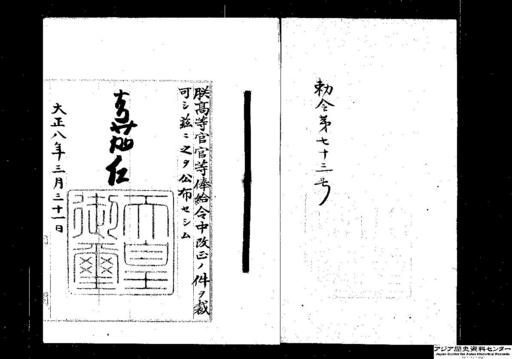 勅令第七十三号
朕高等官官等俸給令中改正ノ件ヲ裁
可シ茲ニ之ヲ公布セシム
嘉仁
天皇
御璽
大正八年三月三十一日
アジア歴史資料センター
Japan Center for Asian Historical Records